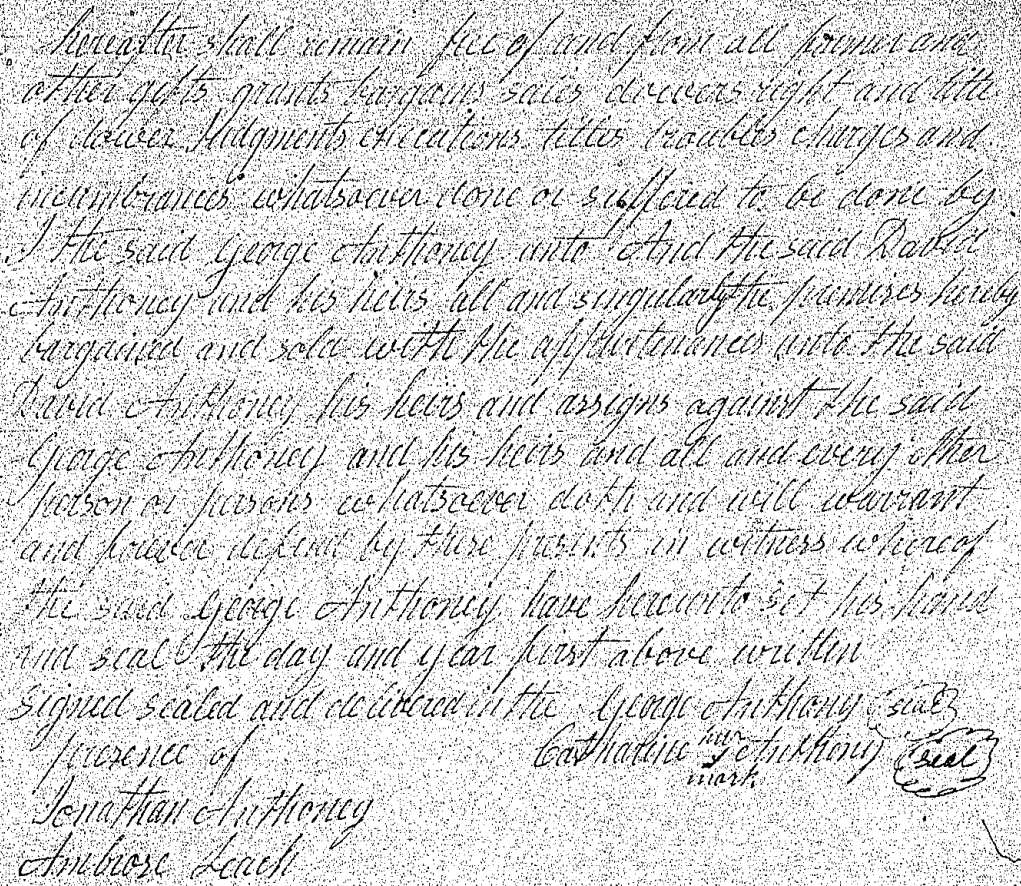 hereafter shall remain free of and from all former and
other gifts grants bargains sales dowers right and title
of dower Judgments executions titles troubles charges and
incumbrances whatsoever done or suffered to be done by
I the said George Anthoney unto And the said David
Anthoney and his heirs all and singularly the premises hereby
bargained and sold with the appurtenances unto the said
David Anthoney his heirs and assigns against the said
George Anthoney and his heirs and all and every other
person or persons whatsoever doth and will warrant
and forever defend by these presents in witness whereof
the said George Anthoney have hereunto set his hand
and seal the day and year first above written
Signed sealed and delivered in the George Anthony seal
presence of Catharine her Anthony seal
mark
Jonathan Anthoney
Ambrose Leach